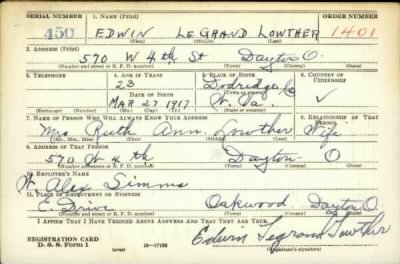 SERIAL NUMBER 1. NAME (Print) ORDER NUMBER
450 EDWIN LEGRAND LOWTHER 1401
(First) (Middle) (Last)
2. ADDRESS (Print)
570 W 4th St Dayton O.
(Number and street or R. F. D. number) (Town) (County) (State)
3. TELEPHONE 4. AGE IN YEARS 5. PLACE OF BIRTH 6. COUNTRY OF CITIZENSHIP
23 Dodridge Co
DATE OF BIRTH (Town or county)
MAR 27 1917 W. Va. ✓
(Exchange) (No.) (Mo.) (Day) (Yr.) (State or country)
7. NAME OF PERSON WHO WILL ALWAYS KNOW YOUR ADDRESS 8. RELATIONSHIP OF THAT PERSON
Mrs. Ruth Ann. Lowther Wife
(Mr., Mrs., Miss) (First) (Middle) (Last)
9. ADDRESS OF THAT PERSON
570 W 4th Dayton O
(Number and street or R. F. D. number) (Town) (County) (State)
10. EMPLOYER'S NAME
W. Alex Simms
11. PLACE OF EMPLOYMENT OR BUSINESS
E. Drive Oakwood Dayton O.
(Number and street or R. F. D. number) (Town) (County) (State)
I AFFIRM THAT I HAVE VERIFIED ABOVE ANSWERS AND THAT THEY ARE TRUE.
REGISTRATION CARD
D. S. S. Form 1 (over) 16—17105
Edwin Legrand Lowther
(Registrant's signature)